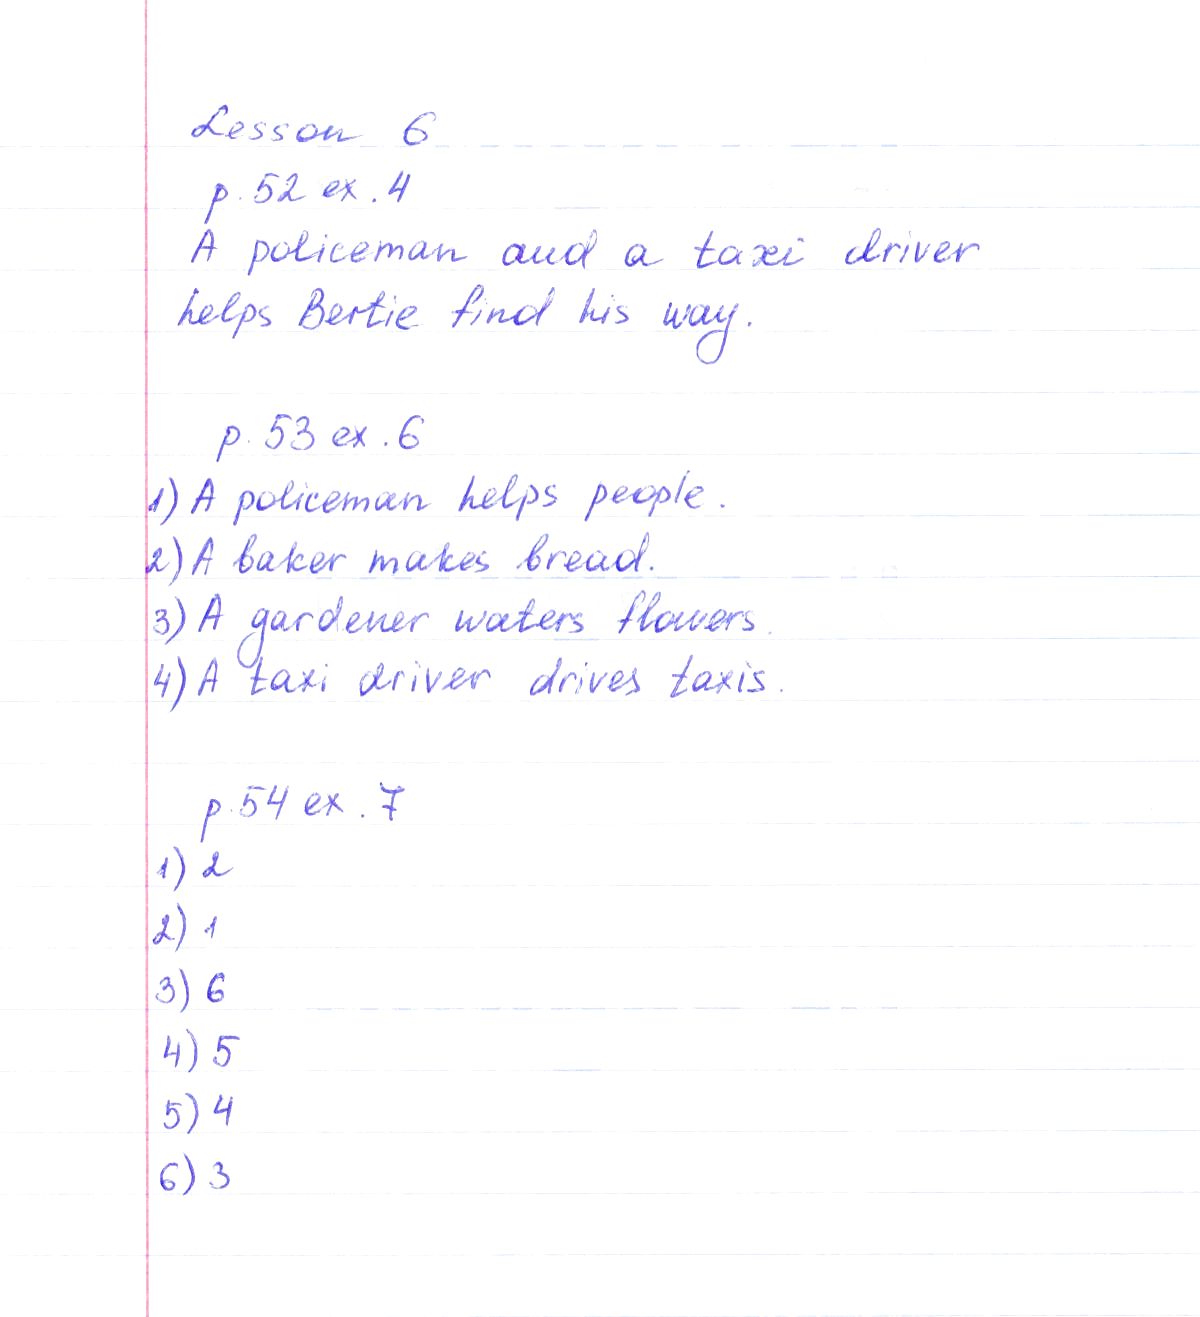 Lesson 6
p. 52 ex. 4
A policeman and a taxi driver
helps Bertie find his way.
p. 53 ex. 6
1) A policeman helps people.
2) A baker makes bread.
3) A gardener waters flowers.
4) A taxi driver drives taxis.
p. 54 ex. 7
1) 2
2) 1
3) 6
4) 5
5) 4
6) 3